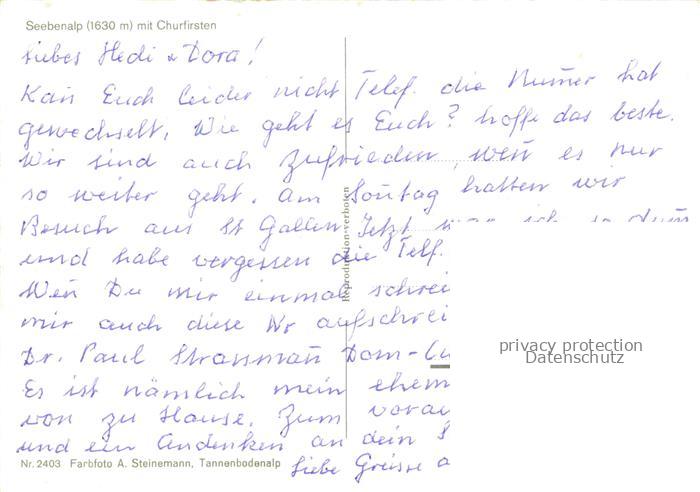 Seebenalp (1630 m) mit Churfirsten
Liebes Hedi & Dora!
Kan̄ Euch leider nicht Telef. die Num̄er hat
gewechselt, Wie geht es Euch? hoffe das beste.
Wir sind auch zufrieden, wen̄ es nur
so weiter geht. Am Son̄tag hatten wir
Besuch aus St Gallen Jetzt war ich so dum̄
und habe vergessen die Telf.
Wen̄ Du mir einmal schrei
mir auch diese Nr aufschrei
Dr. Paul Strassman̄ Dom-
Es ist nämlich mein ehem
von zu Hause. Zum vorau
und ein Andenken an dein
Liebe Grüsse a
Nr. 2403 Farbfoto A. Steinemann, Tannenbodenalp
Reproduktion verboten
privacy protection
Datenschutz